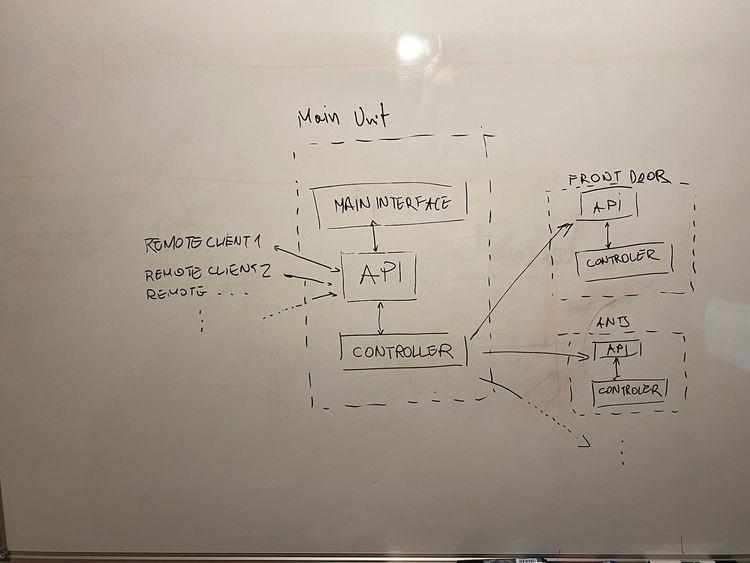 Main Unit
MAIN INTERFACE
REMOTE CLIENT 1
REMOTE CLIENT 2
REMOTE ....
API
CONTROLLER
FRONT DOOR
API
CONTROLER
ANTS
API
CONTROLER